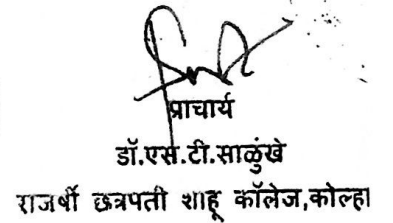 प्राचार्य
डॉ.एस.टी.साळुंखे
राजर्षी छत्रपती शाहू कॉलेज,कोल्हा